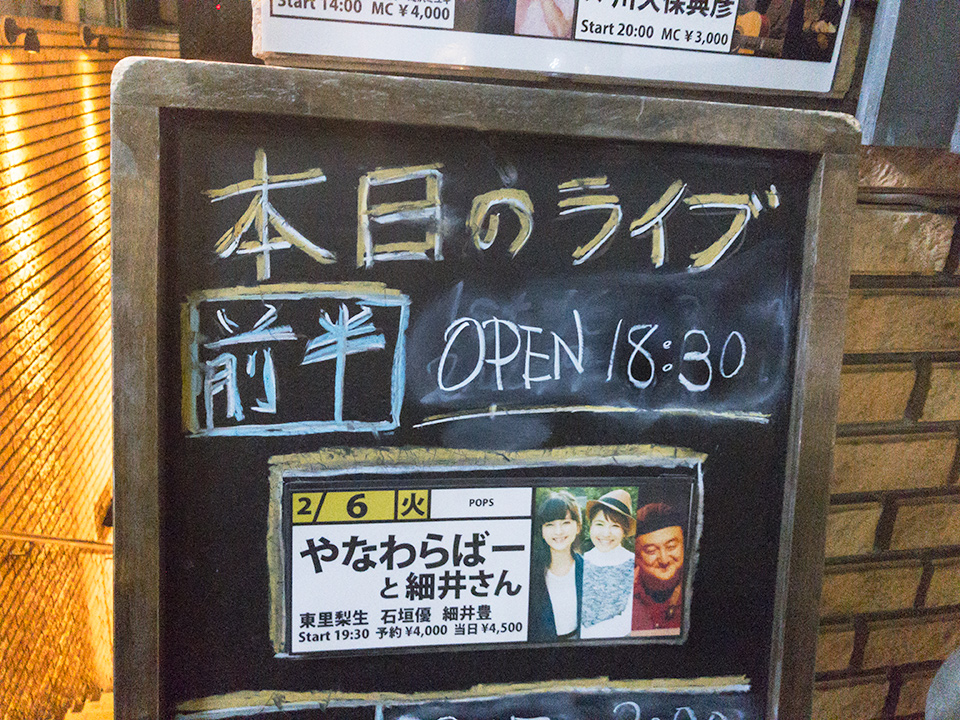 Start 14:00 MC ¥4,000
川久保典彦
Start 20:00 MC ¥3,000
本日のライブ
前半 OPEN 18:30
2/6 火 POPS
やなわらばー
と細井さん
東里梨生 石垣優 細井豊
Start 19:30 予約 ¥4,000 当日 ¥4,500